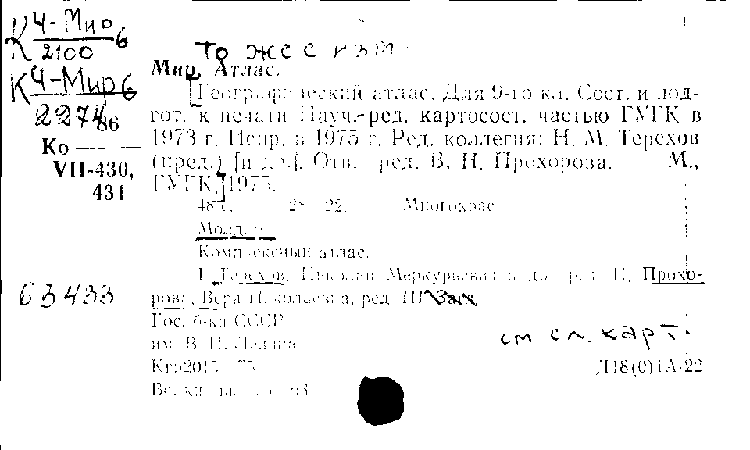 К Ч-Мир б
2100
К Ч-Мир б
2274
86
Ко
VII-430,
431
63433
то же с изм.
Мир. Атлас.
Географический атлас. Для 9-го кл. Сост. и под-
гот. к печати Науч.-ред. картосост. частью ГУГК в
1973 г. Испр. в 1975 г. Ред. коллегия: Н. М. Терехов
(пред.) [и др.]. Отв. ред. В. Н. Прохорова. М.,
ГУГК, 1975.
48 с. 28 22. Многокрас
Молд.
Комплексный атлас.
I. Терехов, Николай Меркурьевич ред. II. Прохо-
рова, Вера Николаевна, ред. III Загл.
Гос. б-ка СССР
им. В. И. Ленина
см сл. карт.
Л18(0)1А-22